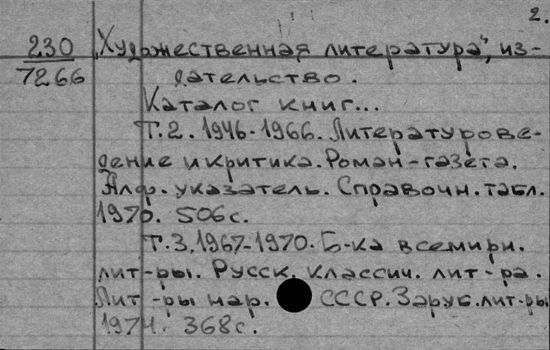 2.
230 „Художественная литература", из-
7266 дательство.
Каталог книг...
Т.2. 1946-1966. Литературове-
дение и критика. Роман-газета.
Алф. указатель. Справочн. табл.
1970. 506с.
Т.3. 1967-1970. Б-ка всемирн.
лит-ры. Русск. классич. лит-ра.
Лит-ры нар. СССР. Заруб. лит-ры
1974. 368с.